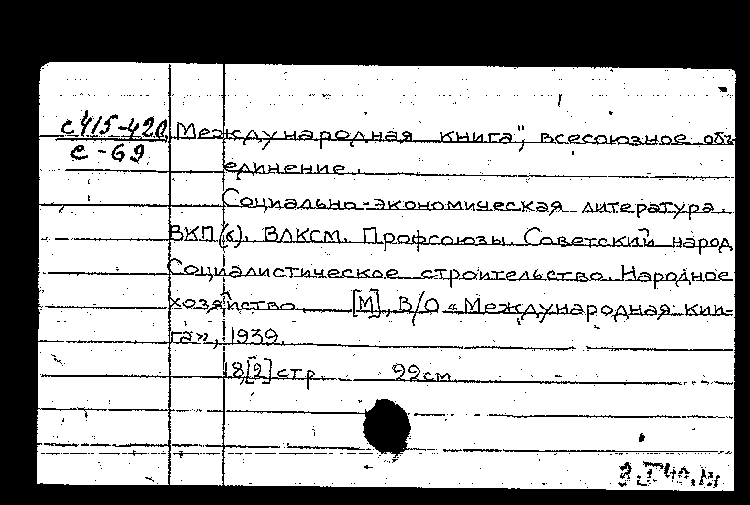 с415-420
с-69
Международная книга", всесоюзное объ
единение.
Социально-экономическая литература.
ВКП(б). ВЛКСМ. Профсоюзы. Советский народ
Социалистическое строительство. Народное
хозяйство [М], В/О «Международная кни-
га», 1939.
18,[2] стр. 22 см